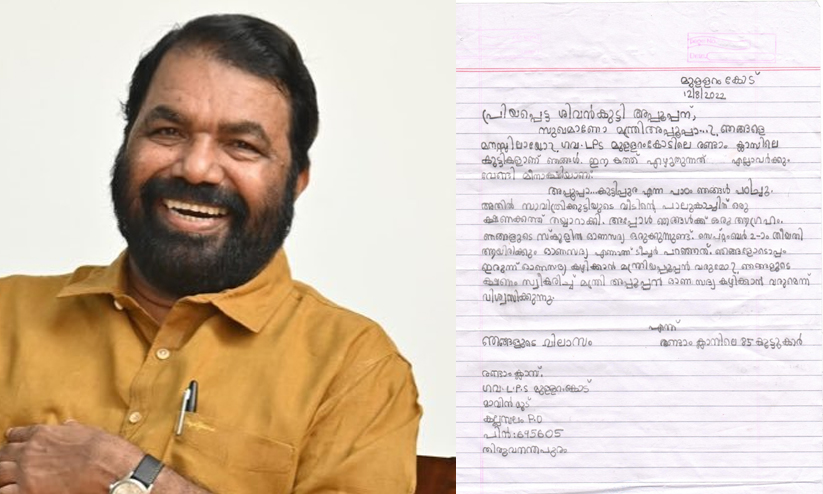 മുള്ളറംകോട്
12/8/2022
പ്രിയപ്പെട്ട ശിവൻകുട്ടി അപ്പൂപ്പന്,
സുഖമാണോ മന്ത്രിഅപ്പൂപ്പാ...? ഞങ്ങളെ
മനസ്സിലായോ? ഗവ: LPS മുള്ളറംകോടിലെ രണ്ടാം ക്ലാസിലെ
കുട്ടികളാണ് ഞങ്ങൾ. ഈ കത്ത് എഴുതുന്നത് എല്ലാവർക്കും
വേണ്ടി മീനാക്ഷിയാണ്.
അപ്പൂപ്പാ...കുട്ടിപ്പുര എന്ന പാഠം ഞങ്ങൾ പഠിച്ചു.
അതിൽ സാവിത്രിക്കുട്ടിയുടെ വീടിന്റെ പാലുകാച്ചിന് ഒരു
ക്ഷണക്കത്ത് തയ്യാറാക്കി. അപ്പോൾ ഞങ്ങൾക്ക് ഒരു ആഗ്രഹം.
ഞങ്ങളുടെ സ്കൂളിൽ ഓണസദ്യ ഒരുക്കുന്നുണ്ട്. സെപ്റ്റംബർ 2-ാം തീയതി
ആയിരിക്കും ഓണസദ്യ എന്നാണ് ടീച്ചർ പറഞ്ഞത്. ഞങ്ങളോടൊപ്പം
ഇരുന്ന് ഓണസദ്യ കഴിക്കാൻ മന്ത്രിയപ്പൂപ്പൻ വരുമോ? ഞങ്ങളുടെ
ക്ഷണം സ്വീകരിച്ച് മന്ത്രി അപ്പൂപ്പൻ ഓണ സദ്യ കഴിക്കാൻ വരുമെന്ന്
വിശ്വസിക്കുന്നു.
എന്ന്
ഞങ്ങളുടെ വിലാസം രണ്ടാം ക്ലാസിലെ 85 കൂട്ടുകാർ
രണ്ടാം ക്ലാസ്,
ഗവ: LPS മുള്ളറംകോട്
മാവിൻ മൂട്
കല്ലമ്പലം P.O
പിൻ:695605
തിരുവനന്തപുരം